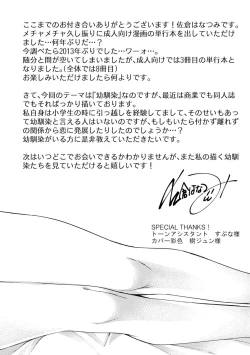 ここまでのお付き合いありがとうございます！佐倉はなつみです。
メチャメチャ久し振りに成人向け漫画の単行本を出していただけ
ました…何年ぶりだ…？
今調べたら2013年ぶりでした…ワーォ…。
随分と間が空いてしまいましたが、成人向けでは3冊目の単行本と
なりました。(全体では8冊目)
お楽しみいただけましたら何よりです。
さて、今回のテーマは『幼馴染』なのですが、最近は商業でも同人誌
でもそればっかり描いております。
私自身は小学生の時に引っ越しを経験してまして、そのせいもあっ
て幼馴染と言える人はいないのですが、もしもいたら付かず離れず
の関係から恋に発展したりしたのでしょうか…？
幼馴染がいる方に是非教えていただきたいです。
次はいつどこでお会いできるかわかりませんが、また私の描く幼馴
染たちを見ていただけましたら嬉しいです。
SPECIAL THANKS！
トーンアシスタント　すぷな様
カバー彩色　樹ジュン様